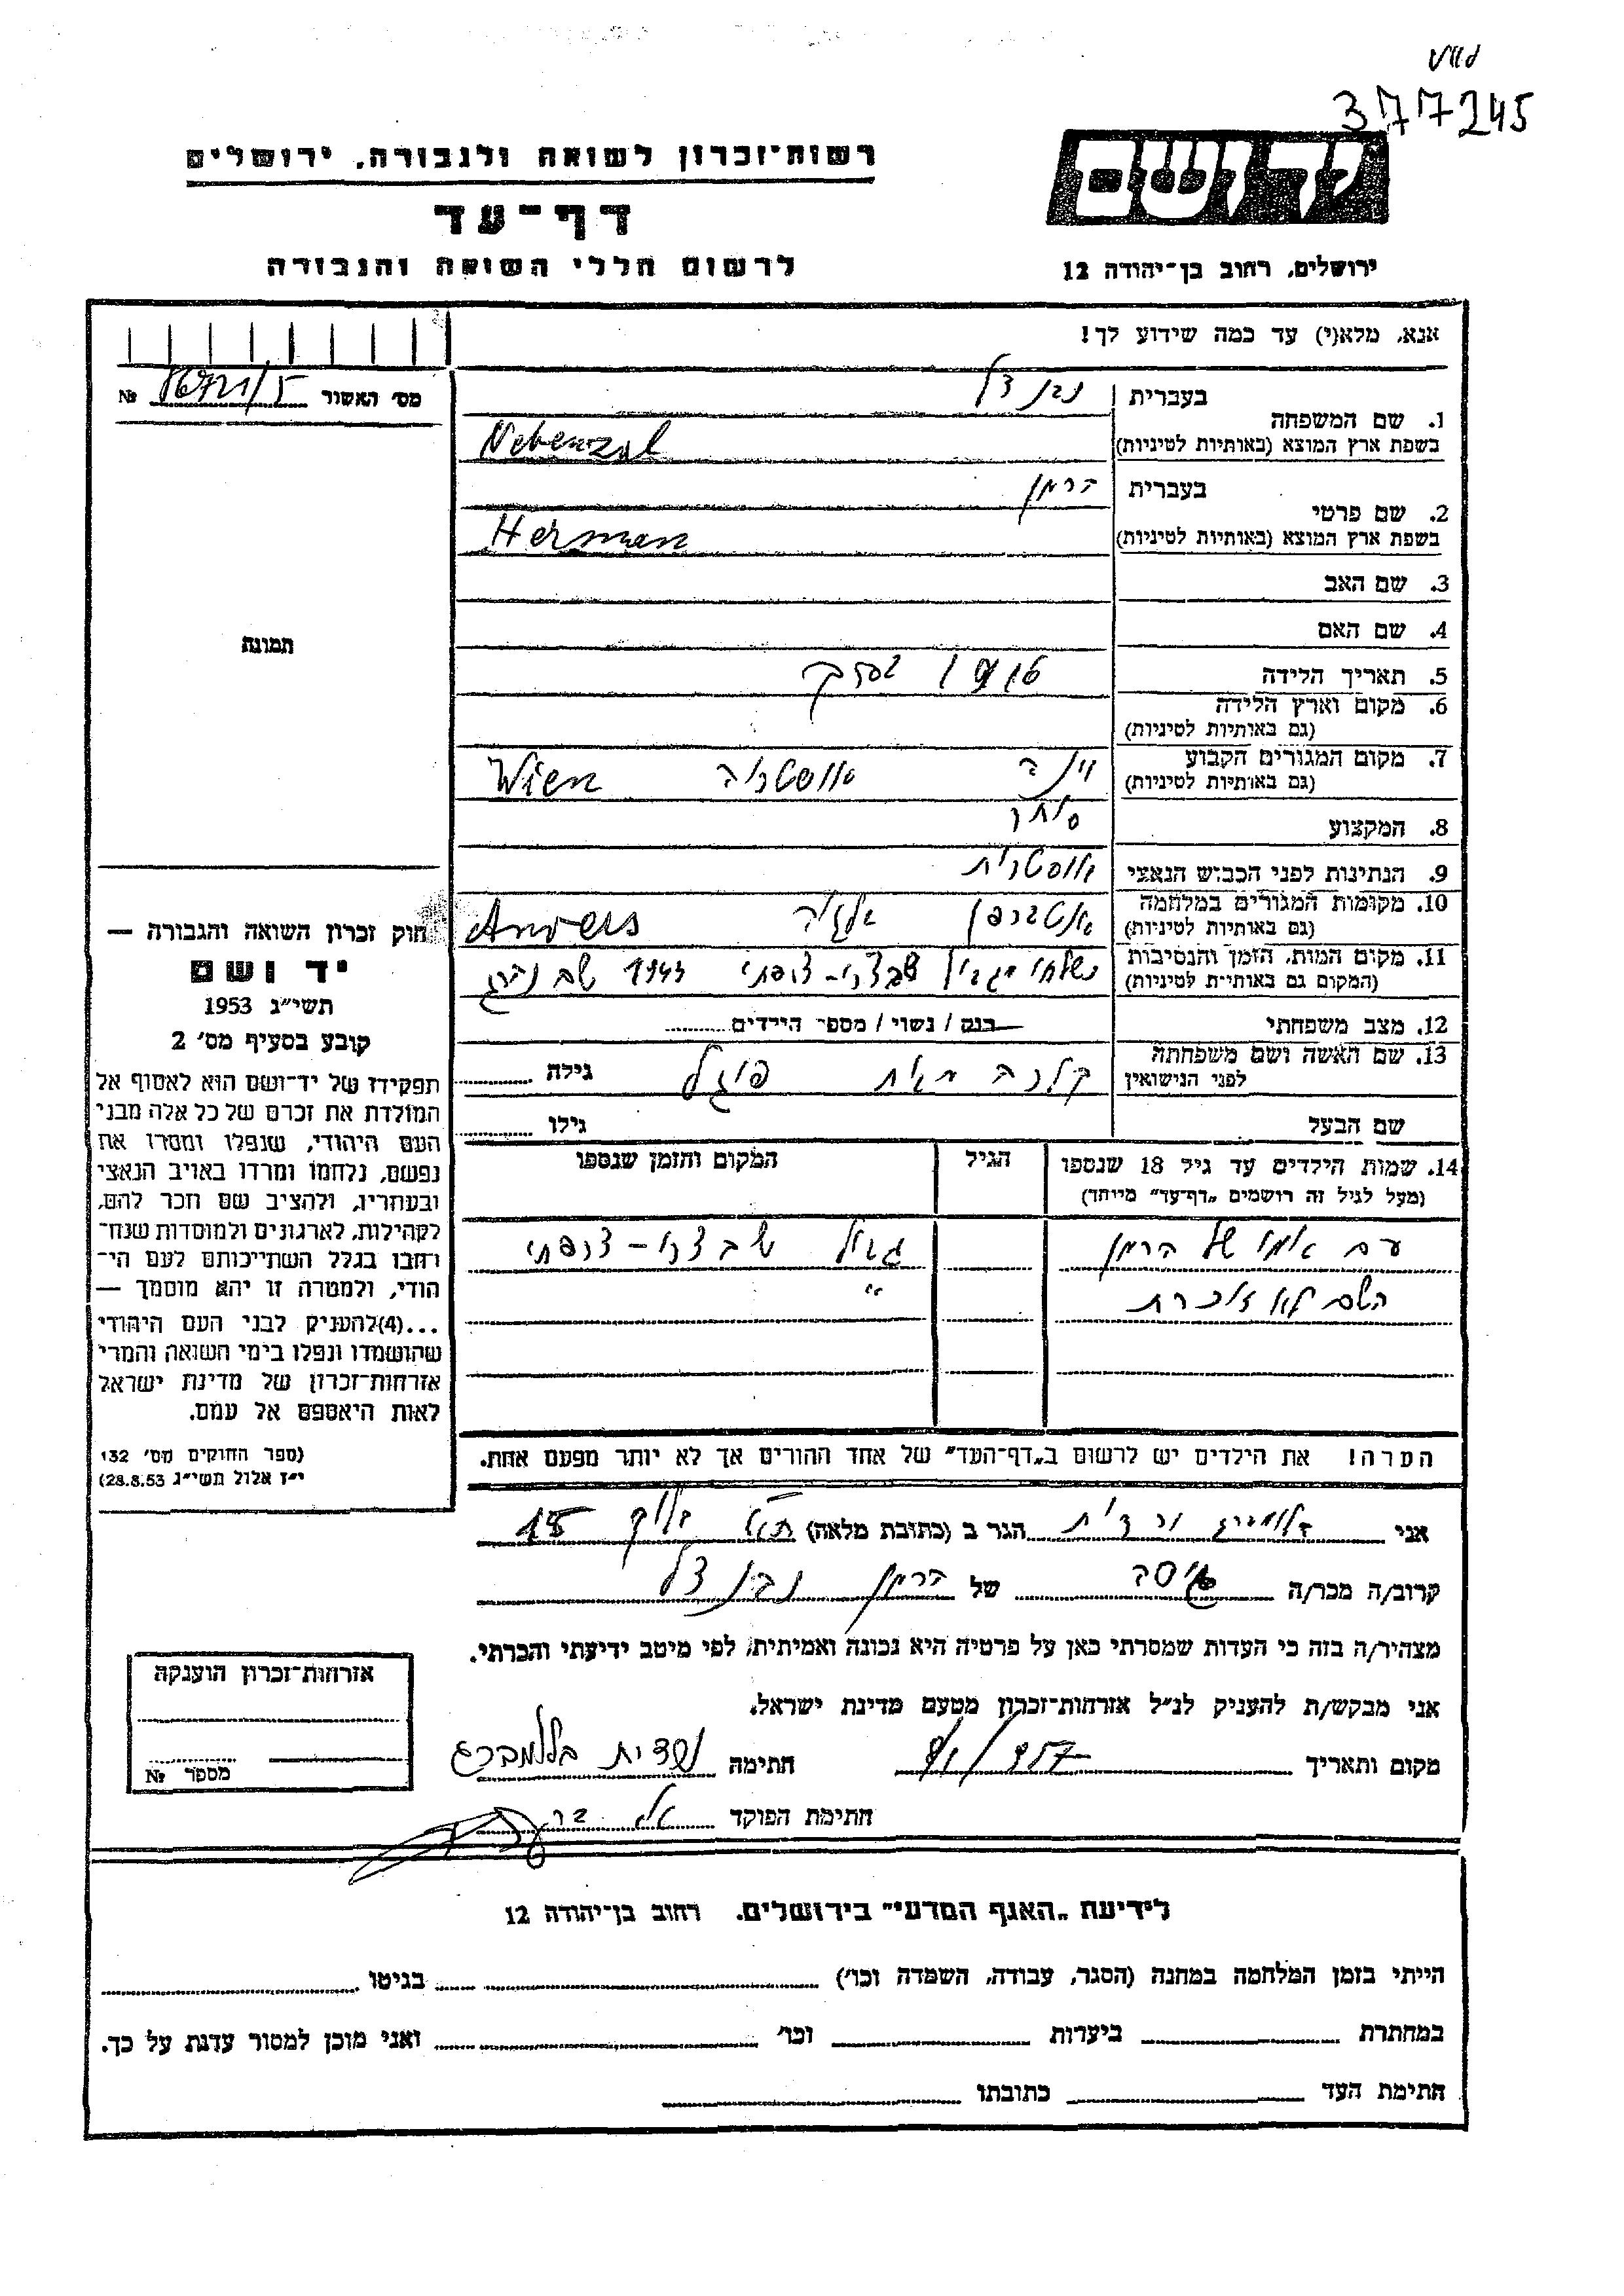 377245
רשות־זכרון לשואה ולגבורה, ירושלים
דף־עד
לרשום חללי השואה והגבורה
יד ושם
ירושלים, רחוב בן־יהודה 12
אנא, מלא(י) עד כמה שידוע לך!
מס' האשור № 
בעברית נבנצל
1. שם המשפחה
בשפת ארץ המוצא (באותיות לטיניות) Nebenzal
בעברית הרמן
2. שם פרטי
בשפת ארץ המוצא (באותיות לטיניות) Herman
3. שם האב
4. שם האם
תמונה
5. תאריך הלידה
6. מקום וארץ הלידה
(גם באותיות לטיניות)
7. מקום המגורים הקבוע וינה אוסטריה Wien
(גם באותיות לטיניות)
8. המקצוע סוחר
9. הנתינות לפני הכבוש הנאצי אוסטרית
10. מקומות המגורים במלחמה אנטורפן בלגיה Anvers
(גם באותיות לטיניות)
11. מקום המות, הזמן והנסיבות נשלחו מגבול שבצרי-צרפתי 1943
(המקום גם באותיות לטיניות)
12. מצב משפחתי רוק / נשוי / מספר הילדים
13. שם האשה ושם משפחתה קלרה מבית פוגל גילה
לפני הנישואין
שם הבעל גילו
14. שמות הילדים עד גיל 18 שנספו הגיל המקום והזמן שנספו
(מעל לגיל זה רושמים „דף־עד" מיוחד)
עם אמו של הרמן גבול שבצרי-צרפתי
השם לא זוכרת "
הערה! את הילדים יש לרשום ב„דף־העד" של אחד ההורים אך לא יותר מפעם אחת.
חוק זכרון השואה והגבורה —
יד ושם
תשי"ג 1953
קובע בסעיף מס' 2
תפקידו של יד־ושם הוא לאסוף אל
המולדת את זכרם של כל אלה מבני
העם היהודי, שנפלו ומסרו את
נפשם, נלחמו ומרדו באויב הנאצי
ובעוזריו, ולהציב שם וזכר להם,
לקהילות, לארגונים ולמוסדות שנח־
רבו בגלל השתייכותם לעם הי־
הודי, ולמטרה זו יהא מוסמך —
...(4)להעניק לבני העם היהודי
שהושמדו ונפלו בימי השואה והמרי
אזרחות־זכרון של מדינת ישראל
לאות היאספם אל עמם.
(ספר החוקים מס' 132
י"ז אלול תשי"ג 28.8.53)
אני הגר ב (כתובת מלאה) ת"א 18
קרוב/ה מכר/ה גיסה של הרמן נבנצל
מצהיר/ה בזה כי העדות שמסרתי כאן על פרטיה היא נכונה ואמיתית, לפי מיטב ידיעתי והכרתי.
אני מבקש/ת להעניק לנ"ל אזרחות־זכרון מטעם מדינת ישראל.
מקום ותאריך חתימה
חתימת הפוקד
אזרחות־זכרון הוענקה
מספר №
לידיעת „האגף המדעי" בירושלים. רחוב בן־יהודה 12
הייתי בזמן המלחמה במחנה (הסגר, עבודה, השמדה וכו') בגיטו
במחתרת ביערות וכו' ואני מוכן למסור עדות על כך.
חתימת העד כתובתו